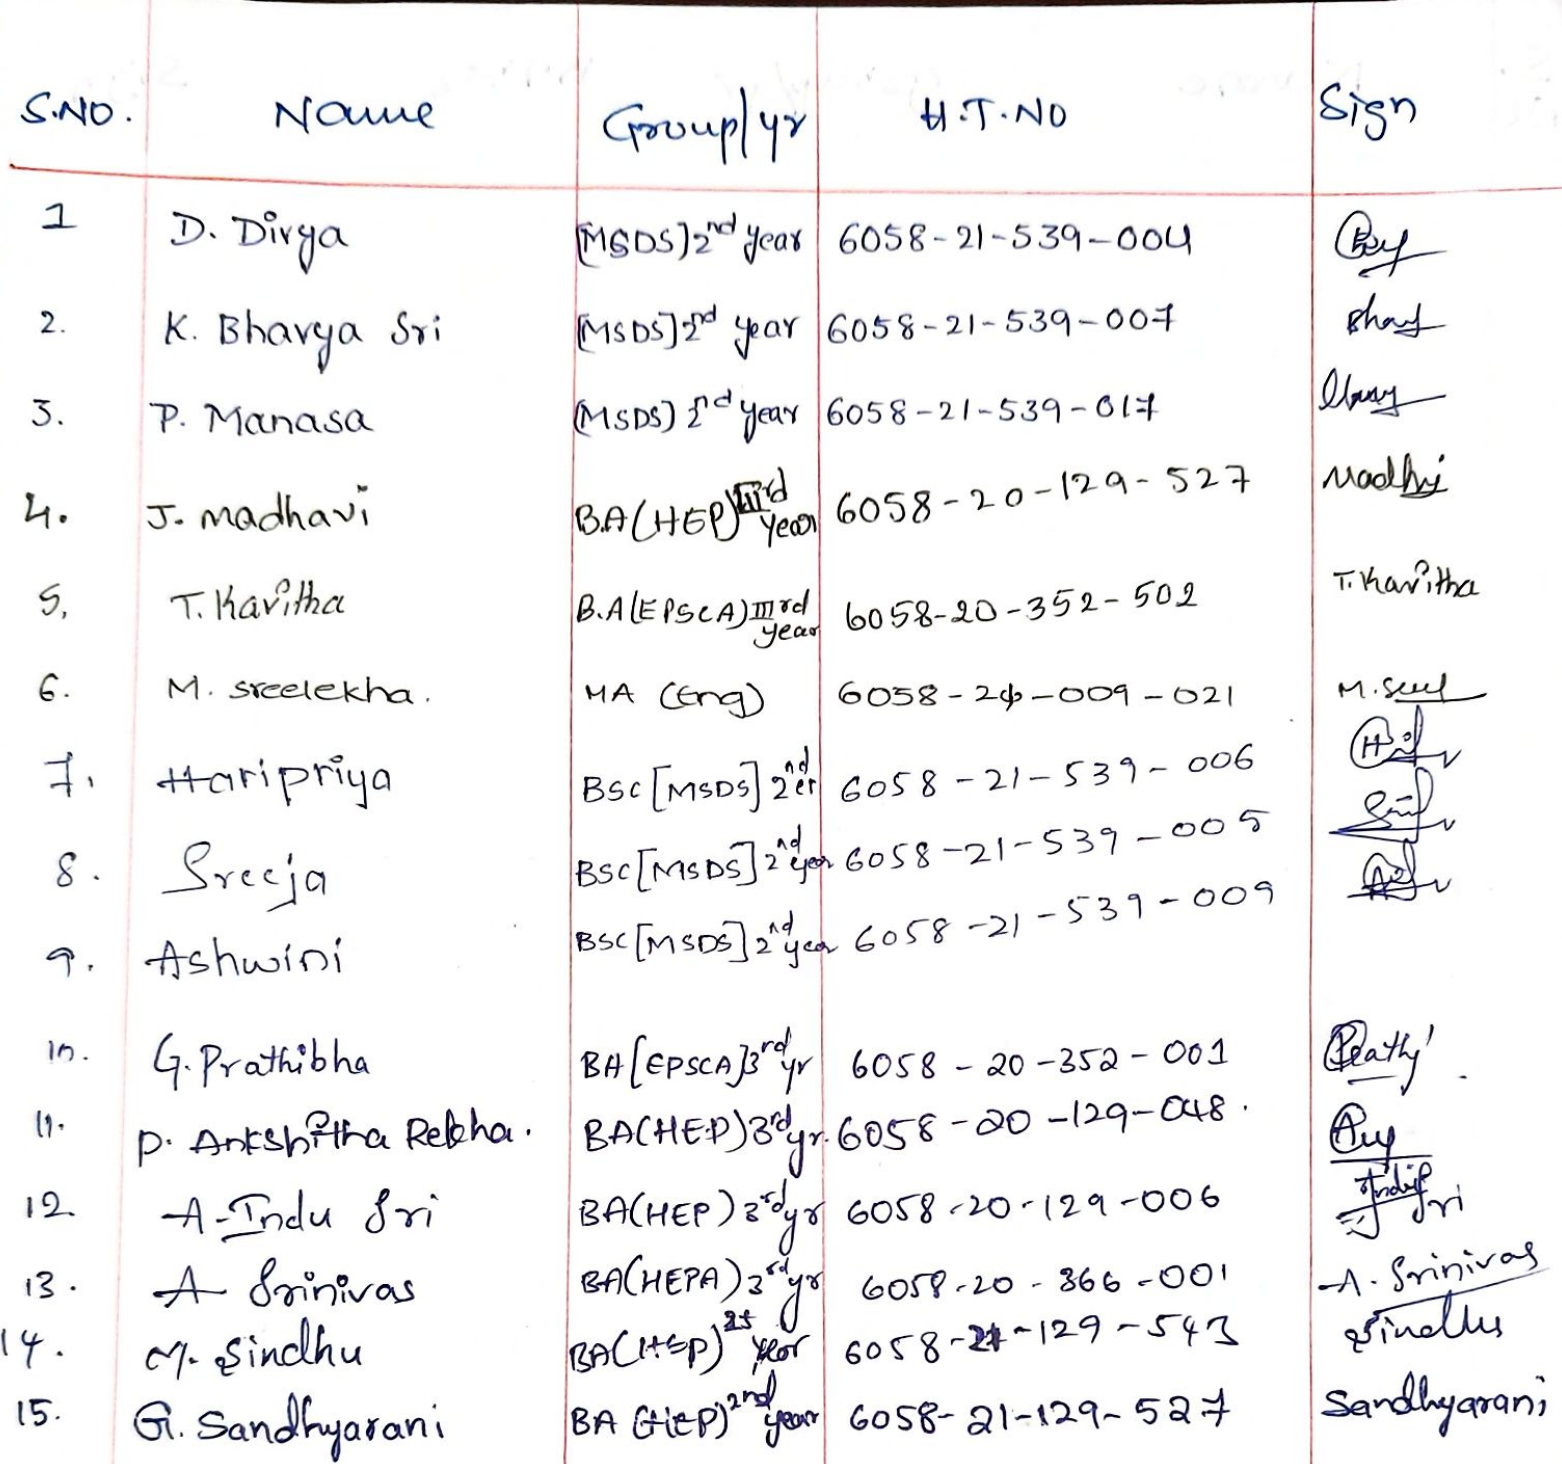 S.NO. Name Group/yr H.T.NO Sign
1 D. Divya [MSDS] 2nd year 6058-21-539-004
2. K. Bhavya Sri [MSDS] 2nd year 6058-21-539-007
3. P. Manasa (MSDS) 2nd year 6058-21-539-017
4. J. madhavi B.A(HEP) IIIrd year 6058-20-129-527 Madhvi
5. T. Kavitha B.A(EPSCA) IIIrd year 6058-20-352-502 T. Kavitha
6. M. sreelekha. MA (Eng) 6058- -009-021
7. Haripriya BSC [MSDS] 2nd 6058-21-539-006
8. Sreeja BSC [MSDS] 2nd year 6058-21-539-005
9. Ashwini BSC [MSDS] 2nd year 6058-21-539-009
10. G. Prathibha BA [EPSCA] 3rd yr 6058-20-352-001
11. P. Rekha. BA(HEP) 3rd yr. 6058-20-129-048.
12. A. Indu Sri BA(HEP) 3rd yr 6058-20-129-006
13. A Srinivas BA(HEPA) 3rd yr 6058-20-366-001 A. Srinivas
14. M. Sindhu BA(HEP) year 6058-21-129-543 Sindhu
15. G. Sandhyarani BA (HEP) 2nd year 6058-21-129-527 Sandhyarani